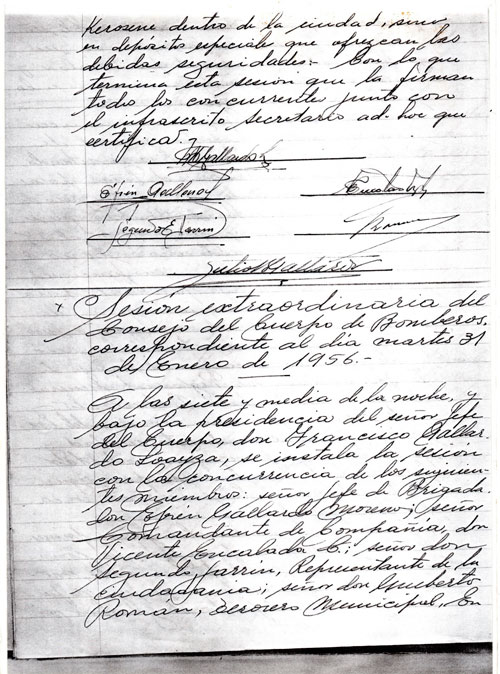 Kerosene dentro de la ciudad, sino
en depósitos especiales que ofrezcan las
debidas seguridades.- Con lo que
termina esta sesión que la firman
todos los concurrentes junto con
el infrascrito secretario ad-hoc que
certifica.
Efrén Gallardo
Segundo E Jarrin
Julio Gallardo
Sesión extraordinaria del
Consejo del Cuerpo de Bomberos,
correspondiente al día martes 31
de Enero de 1956.-
A las siete y media de la noche, y
bajo la presidencia del señor Jefe
del Cuerpo, don Francisco Gallar-
do Loayza, se instala la sesión
con la concurrencia de los siguien-
tes miembros: señor Jefe de Brigada
don Efrén Gallardo Moreno; señor
Comandante de Compañía, don
Vicente Encalada C.; señor don
Segundo Jarrin, Representante de la
Ciudadanía; señor don Humberto
Román, Tesorero Municipal. En